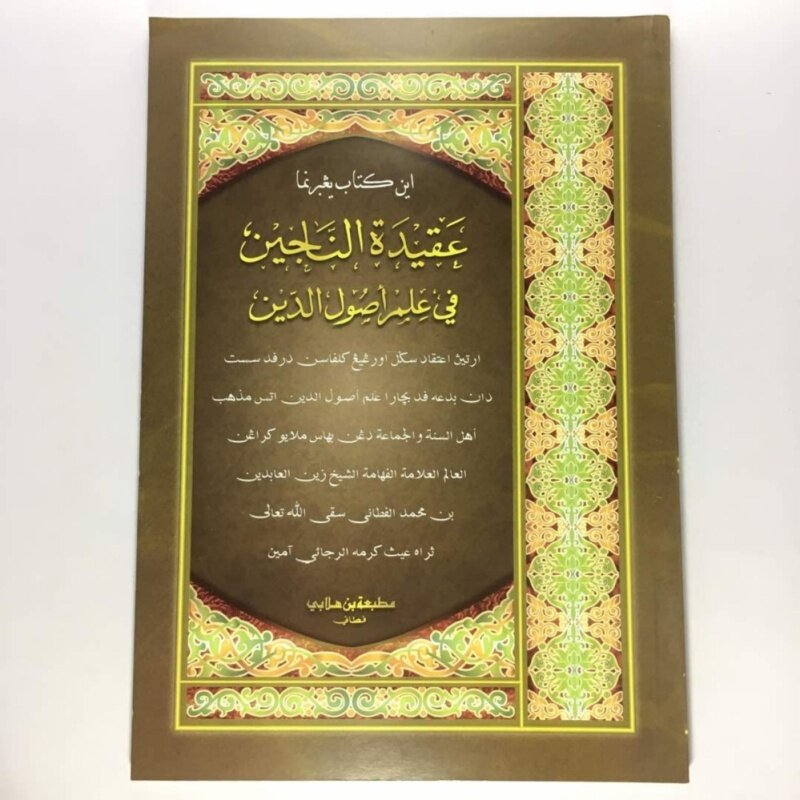 اين كتاب يڠبرنما
عَقِيدَة النَّاجِين
فِي عِلم أصُول الدِّين
ارتيڽ اعتقاد سكل اورڠ يڠ كلفاسن درفد سست
دان بدعه فد بچارا علم أصول الدين اتس مذهب
أهل السنة والجماعة دڠن بهاس ملايو كراڠن
العالم العلامة الفهامة الشيخ زين العابدين
بن محمد الفطاني سقى الله تعالى
ثراه غيث كرمه الرجائي آمين
مطبعة بن هلابي
فطاني